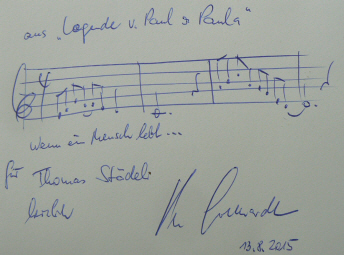 aus „Legende v. Paul & Paula“
wenn ein Mensch lebt...
für Thomas Städeli
herzlich
13.8.2015